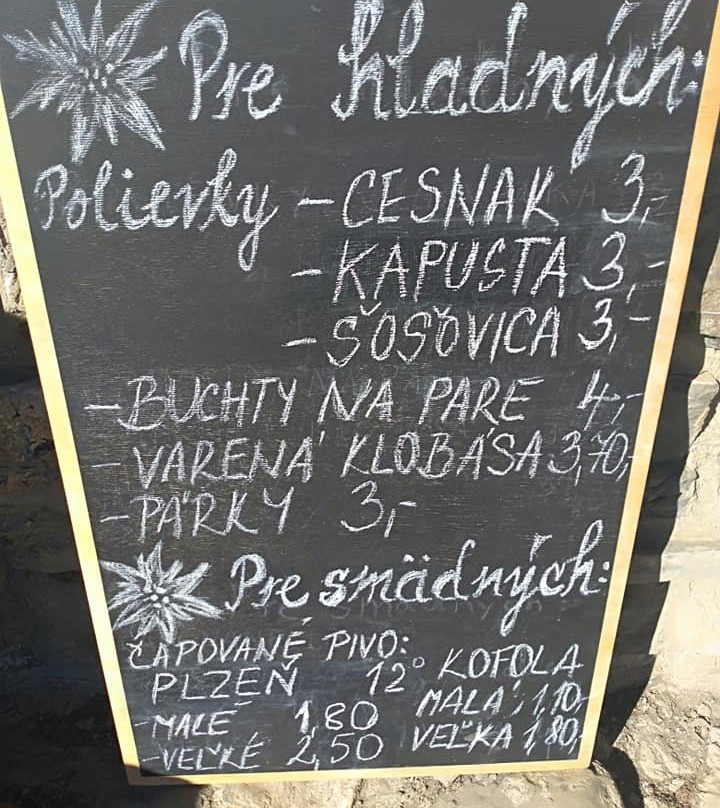 Pre hladných:
Polievky - CESNAK 3,-
- KAPUSTA 3,-
- ŠOŠOVICA 3,-
- BUCHTY NA PARE 4,-
- VARENÁ KLOBÁSA 3,70,-
- PÁRKY 3,-
Pre smädných:
ČAPOVANÉ PIVO:
PLZEŇ 12°
- MALÉ 1,80
- VEĽKÉ 2,50
KOFOLA
MALÁ, 1,10,-
VEĽKÁ 1,80,-